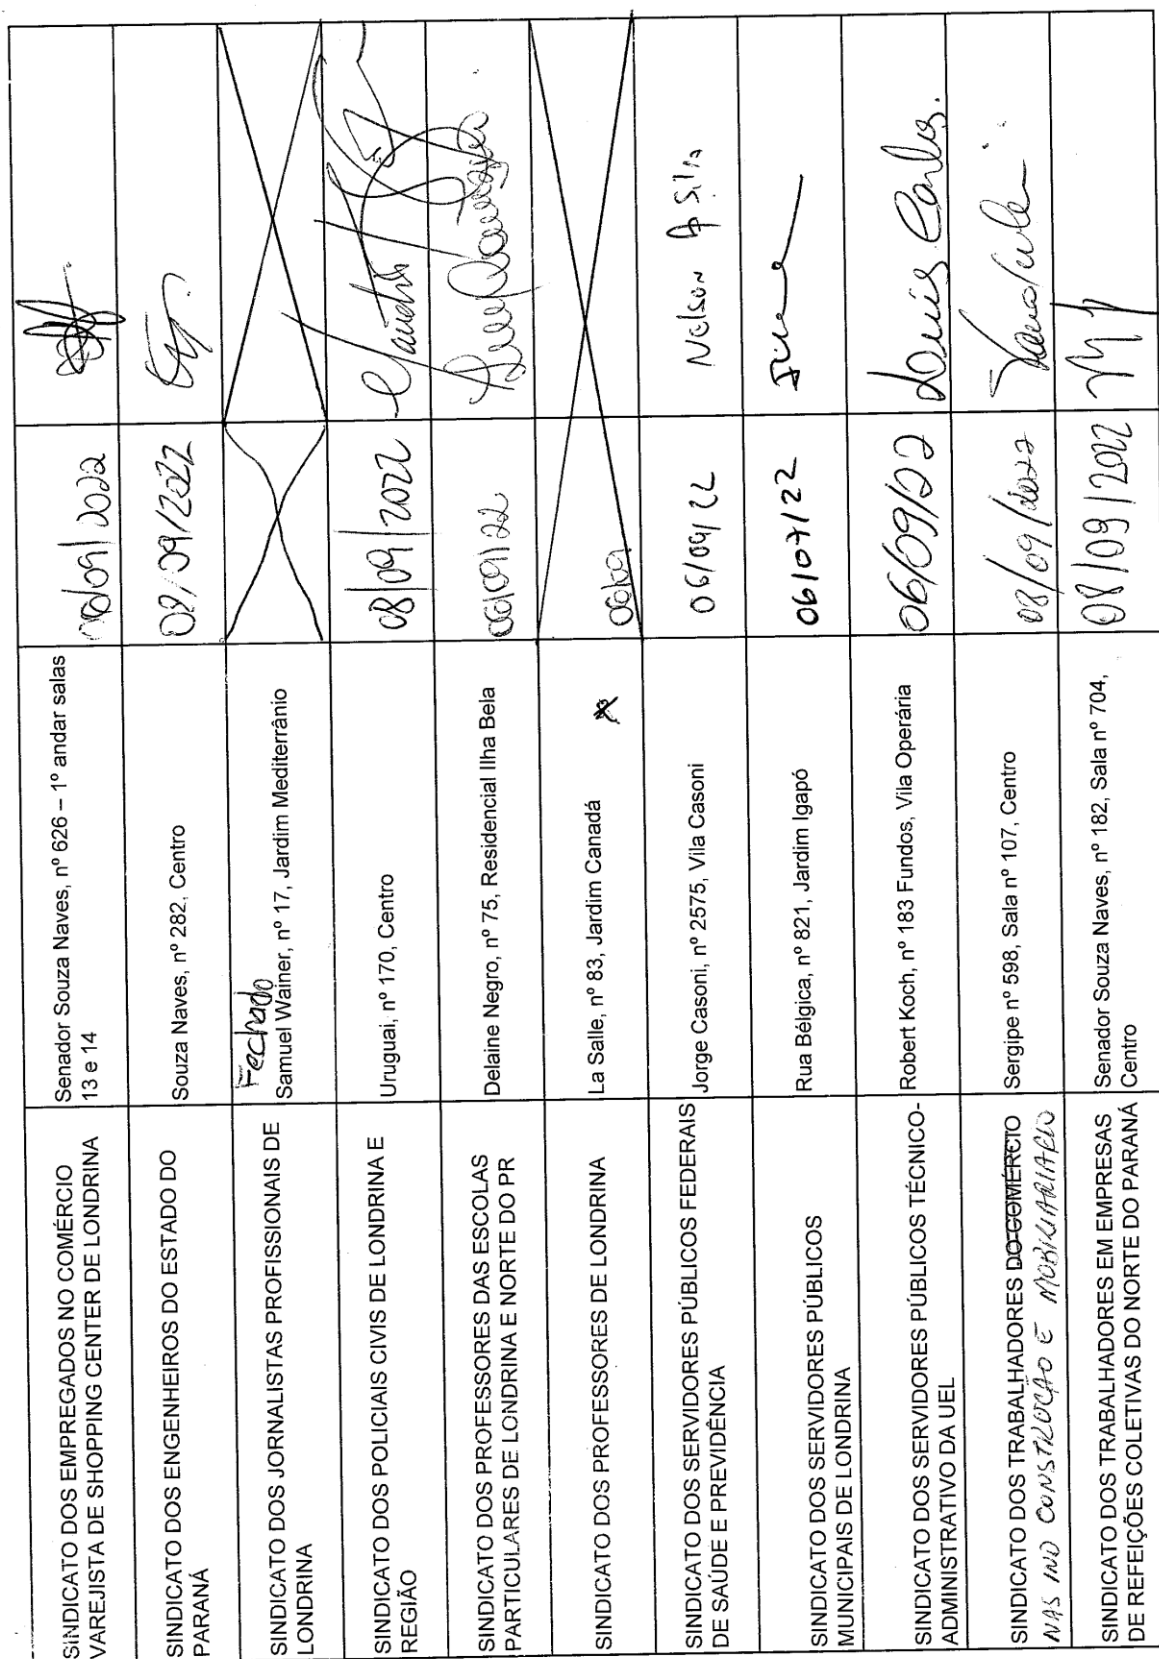 SINDICATO DOS EMPREGADOS NO COMÉRCIO
VAREJISTA DE SHOPPING CENTER DE LONDRINA
Senador Souza Naves, nº 626 – 1º andar salas
13 e 14
/09/2022
SINDICATO DOS ENGENHEIROS DO ESTADO DO
PARANÁ
Souza Naves, nº 282, Centro
08/09/2022
SINDICATO DOS JORNALISTAS PROFISSIONAIS DE
LONDRINA
Fechado
Samuel Wainer, nº 17, Jardim Mediterrânio
SINDICATO DOS POLICIAIS CIVIS DE LONDRINA E
REGIÃO
Uruguai, nº 170, Centro
08/09/2022
SINDICATO DOS PROFESSORES DAS ESCOLAS
PARTICULARES DE LONDRINA E NORTE DO PR
Delaine Negro, nº 75, Residencial Ilha Bela
06/09/22
SINDICATO DOS PROFESSORES DE LONDRINA
La Salle, nº 83, Jardim Canadá
06/09
SINDICATO DOS SERVIDORES PÚBLICOS FEDERAIS
DE SAÚDE E PREVIDÊNCIA
Jorge Casoni, nº 2575, Vila Casoni
06/09/22
Nelson da Silva
SINDICATO DOS SERVIDORES PÚBLICOS
MUNICIPAIS DE LONDRINA
Rua Bélgica, nº 821, Jardim Igapó
06/07/22
SINDICATO DOS SERVIDORES PÚBLICOS TÉCNICO-
ADMINISTRATIVO DA UEL
Robert Koch, nº 183 Fundos, Vila Operária
06/09/22
Luis Carlos.
SINDICATO DOS TRABALHADORES DO COMÉRCIO
NAS IND CONSTRUÇÃO E MOBILIARIARIO
Sergipe nº 598, Sala nº 107, Centro
08/09/2022
SINDICATO DOS TRABALHADORES EM EMPRESAS
DE REFEIÇÕES COLETIVAS DO NORTE DO PARANÁ
Senador Souza Naves, nº 182, Sala nº 704,
Centro
08/09/2022